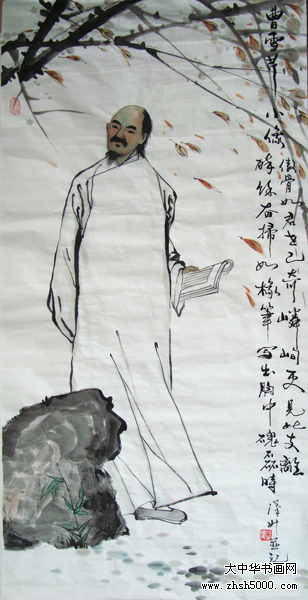 曹雪芹小像
傲骨如君世已奇嶙峋更見此支離
醉餘奋掃如椽筆写出胸中磈磊時
大中华书画网
www.zhsh5000.com